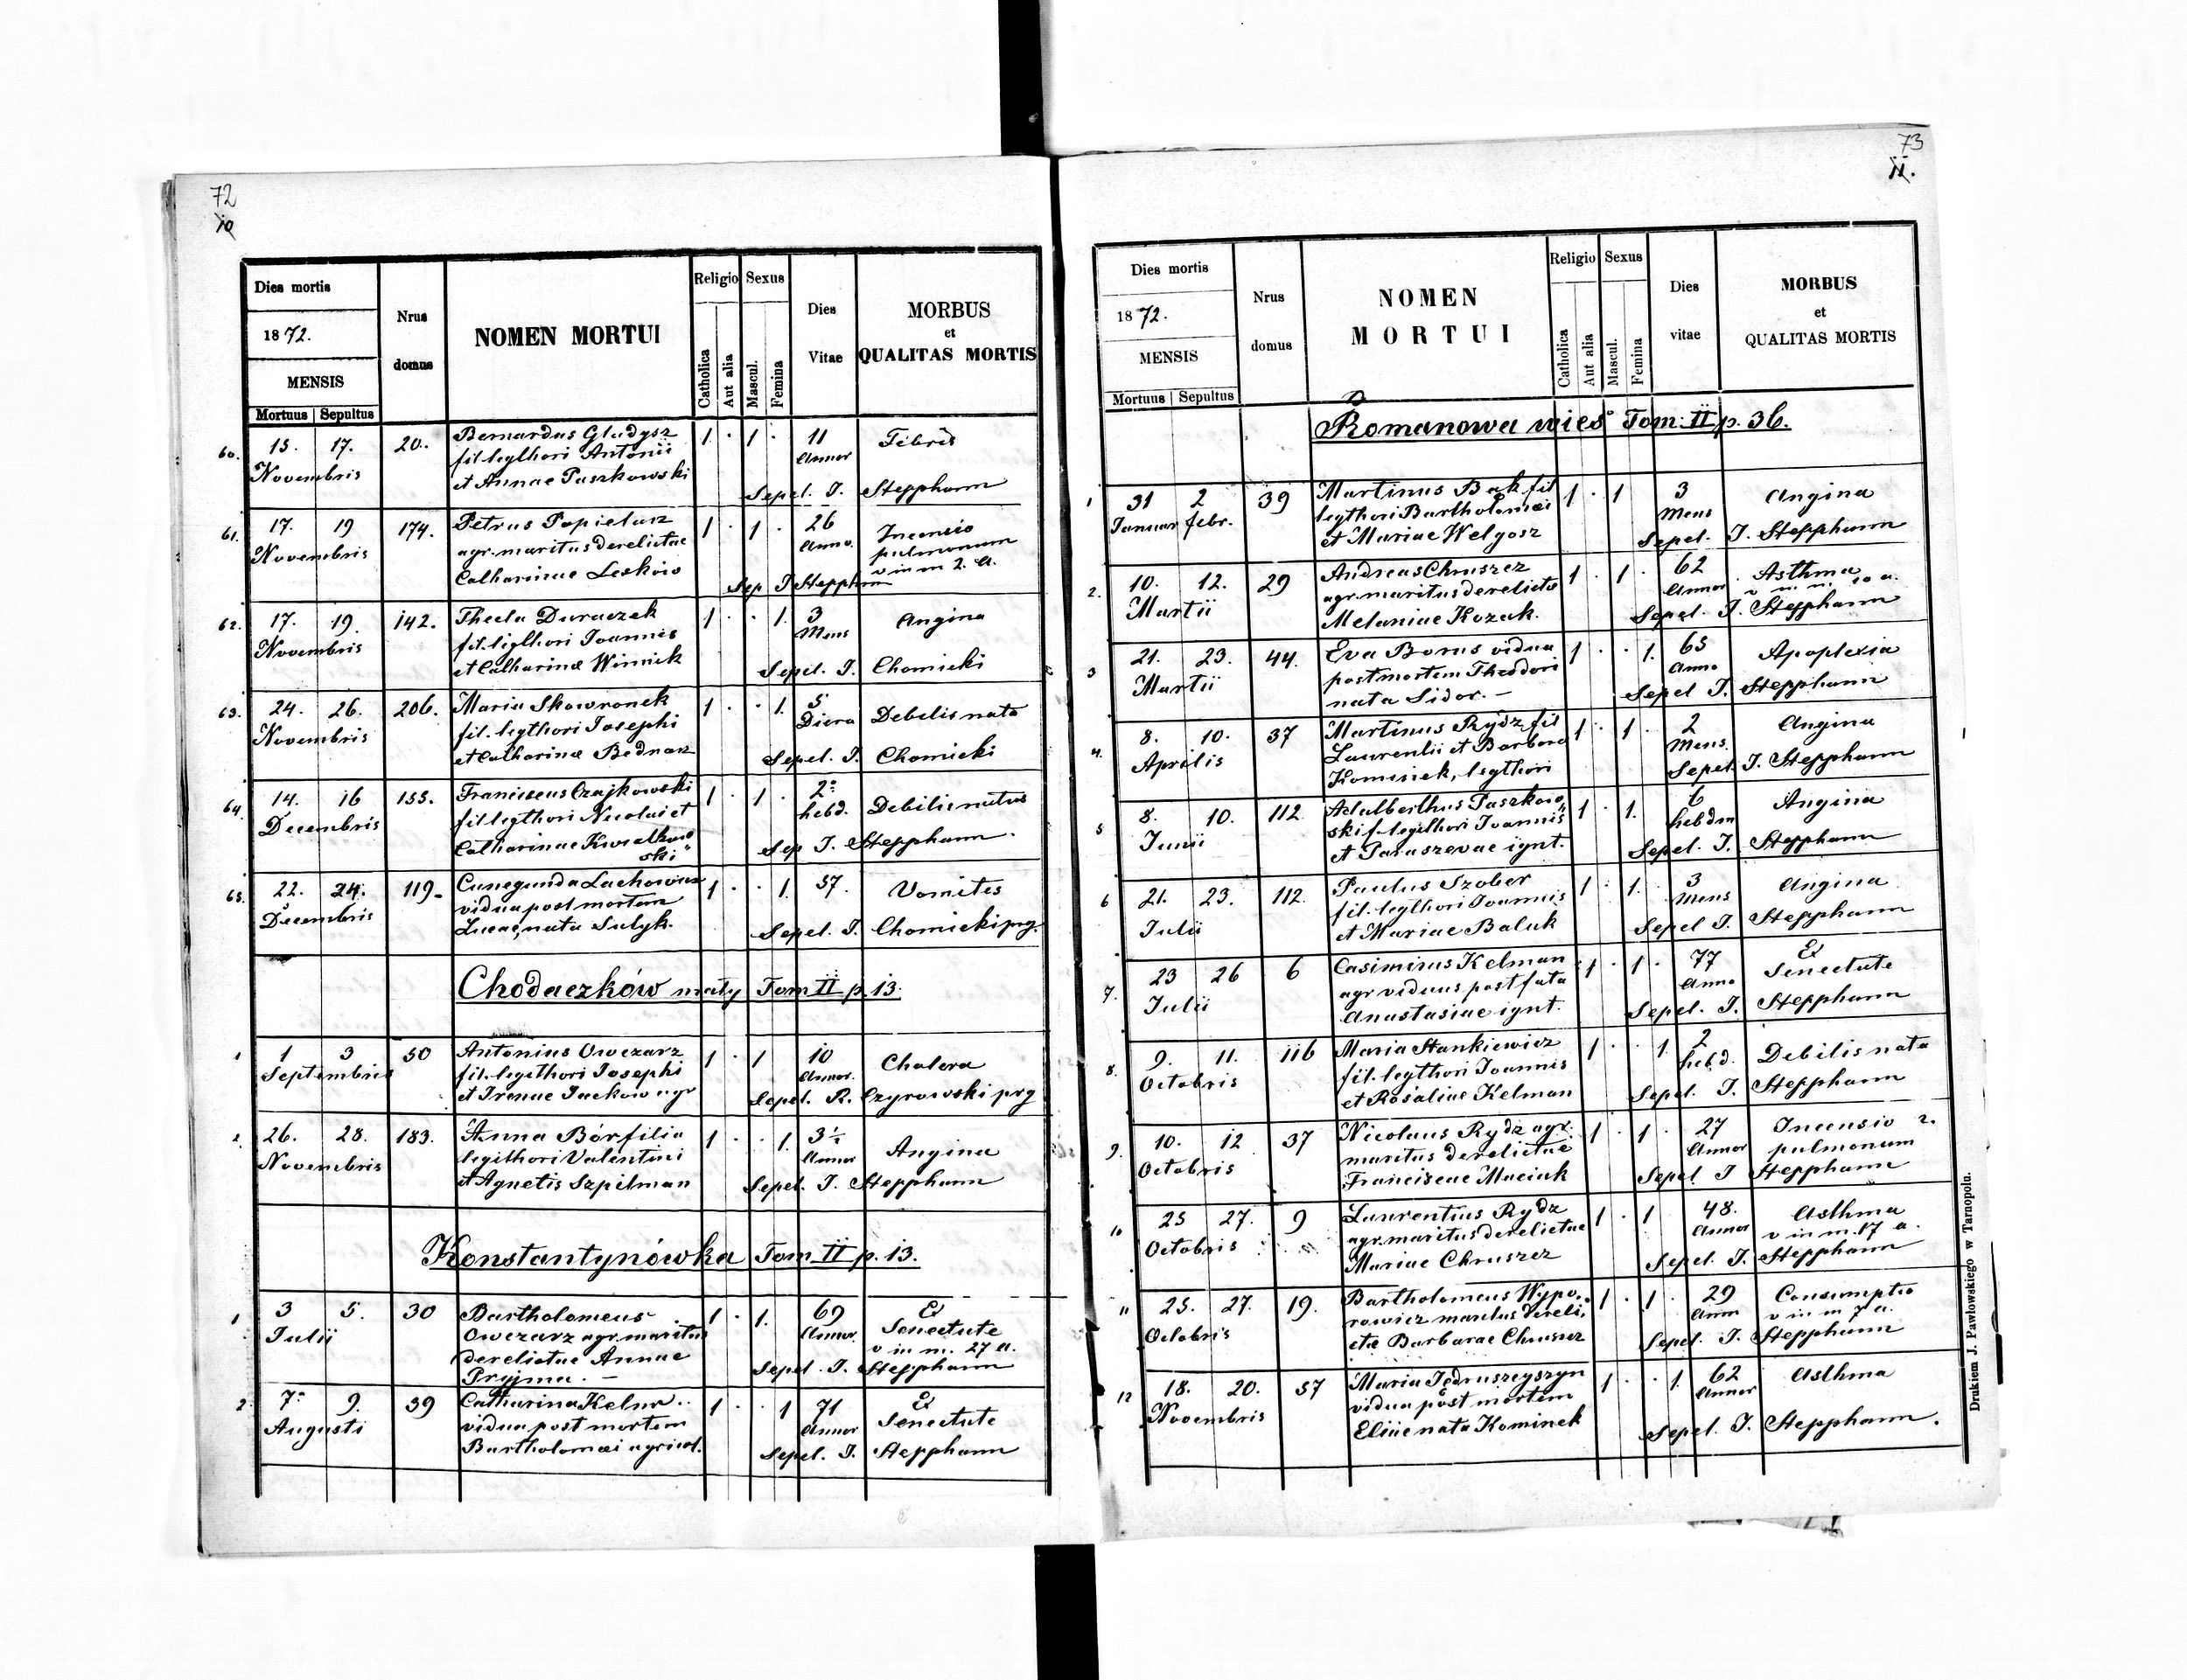 72
10
Dies mortis
1872.
MENSIS
Mortuus Sepultus
Nrus
domus
NOMEN MORTUI
Religio
Catholica
Aut alia
Sexus
Mascul.
Femina
Dies
Vitae
MORBUS
et
QUALITAS MORTIS
60. 15. 17. 20. Bernardus Gladysz 1 · 1 · 11 Febris
Novembris fil. legthori Antonii Annor
et Annae Paszkowski Sepel. J. Stepphann
61. 17. 19 174. Petrus Popielarz 1 · 1 · 26 Incensio
Novembris agr. maritus derelictae Anno. pulmonum
Catharinae Leskow v in m 2. a.
Sep J Stepphann
62. 17. 19. 142. Thecla Duraczek 1 · · 1. 3 Angina
Novembris fil. legthori Joannis Mens
et Catharinæ Winnik Sepel. J. Chomicki
63. 24. 26. 206. Maria Skowronek 1 · · 1. 5 Debilis nata
Novembris fil. legthori Josephi Diera
et Catharinæ Bednarz Sepel. J. Chomicki
64. 14. 16 155. Franciscus Czajkowski 1 · 1 · 2 Debilis natus
Decembris fil. legthori Nicolai et hebd.
Catharinae Kwiatkow
ski Sep J. Stepphann.
65. 22. 24. 119. Cunegunda Lachowicz 1 · · 1. 57. Vomites
Decembris vidua post mortem
Lucae, nata Sulyk. Sepel. J. Chomicki prg.
Chodaczków mały Tom II p. 13.
1 1 3 50 Antonius Owczarz 1 · 1 10 Cholera
Septembris fil. legithori Josephi Annor.
et Irenae Jackow agr Sepel. R. Czyrowski prg
2. 26. 28. 183. Anna Bór filia 1 · · 1. 3½ Angina
Novembris legithori Valentini Annor
et Agnetis Szpilman Sepel. J. Stepphann
Konstantynówka Tom II p. 13.
1 3 5. 30 Bartholomeus 1 · 1. 69 Ex
Julii Owczarz agr. maritus Annor. Senectute
derelictae Annae v in m. 27 a.
Pryjma. — Sepel. J. Stepphann
2 7 9. 39 Catharina 1 · · 1 71 Ex
Augusti vidua post mortem Annor Senectute
Bartholomæi agricol. Sepel. J. Stepphann
73
11.
Dies mortis
1872.
MENSIS
Mortuus Sepultus
Nrus
domus
NOMEN
MORTUI
Religio
Catholica
Aut alia
Sexus
Mascul.
Femina
Dies
vitae
MORBUS
et
QUALITAS MORTIS
Romanowa wieś Tom: II p. 36.
1 31 2 39 Martinus Bak fil 1 · 1 3 Angina
Januar febr. legthori Bartholomæi Mens
et Mariae Welgosz Sepel. J. Stepphann
2. 10. 12. 29 Andreas Chruszcz 1 · 1 · 62 Asthma
Martii agr. maritus derelicte Annor v in m 10 a.
Melaniae Kozak. Sepel. J. Stepphann
3 21. 23. 44. Eva Borus vidua 1 · · 1. 65 Apoplexia
Martii post mortem Theodori Anno
nata Sidor. — Sepel J. Stepphann
4. 8. 10. 37 Martinus Rydz, fil 1 · 1 · 2 Angina
Aprilis Laurentii et Barbara Mens.
Kominek, legthori Sepel. J. Stepphann
5 8. 10. 112. Adalberthus Paszkow 1 · 1. 6 Angina
Junii ski f. legithori Joannis hebdm
et Paraszevae ignt. Sepel. J. Stepphann
6 21. 23. 112. Paulus Szober 1 · 1. 3 Angina
Julii fil. legthori Joannis Mens
et Mariae Baluk Sepel J. Stepphann
7. 23 26 6 Casimirus Kelman 1 · 1 · 77 Ex
Julii agr viduus post fata Anno Senectute
Anastasiae ignt. Sepel. J. Stepphann
8. 9. 11. 116 Maria Stankiewicz 1 · · 1. 2 Debilis nata
Octobris fil. legthori Joannis hebd.
et Rosaliae Kelman Sepel. J. Stepphann
9. 10. 12 37 Nicolaus Rydz agr. 1 · 1 · 27 Incensio
Octobris maritus derelictae Annor pulmonum
Franciscae Maciuk Sepel. J Stepphann
10 25 27. 9 Laurentius Rydz 1 · 1 48. Asthma
Octobris agr. maritus derelictae Annor v in m. 17 a.
Mariae Chruszcz Sepel. J. Stepphann
11 25. 27. 19. Bartholomeus Wypo 1 · 1 · 29 Consumptio
Octobris rowicz maritus dereli, Anno v in m 7 a.
ctæ Barbarae Chruszcz Sepel. J. Stepphann
12 18. 20. 57 Maria Jędruszczyszyn 1 · · 1. 62 Asthma
Novembris vidua post mortem Annor
Eliae nata Kominek Sepel. J. Stepphann.
Drukiem J. Pawłowskiego w Tarnopolu.